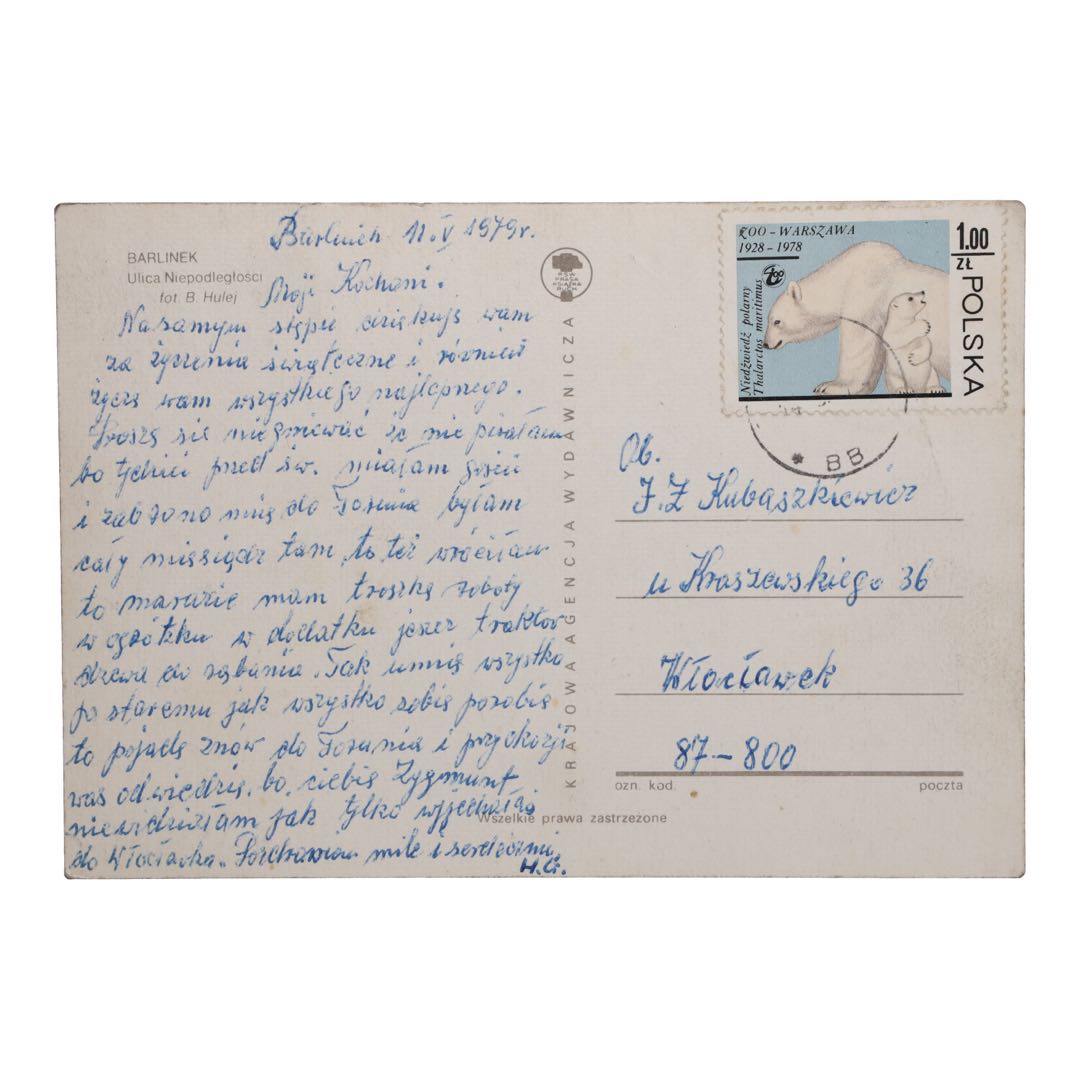 BARLINEK
Ulica Niepodległości
fot. B. Hulej
Barlinek 11.V 1979r.
Moji Kochani.
Na samym stępie dziękuję wam
za życzenia świąteczne i również
życzę wam wszystkiego najlepszego.
Proszę się niegniewać że nie pisałam
bo tydzień przed św. miałam gości
i zabrano mię do Torunia byłam
cały miesiąc tam, to też wróciłam
to marudzie mam troszkę roboty
w ogródku w dodatku jeszcz traktor
drzewa do rąbania. Tak umię wszystko
po staremu jak wszystko sobie porobię
to pojadę znów do Torunia i przyokazji
was odwiedzię, bo ciebie Zygmunt
niewidziałam jak tylko wyjechałeś
do Włocławka. Pozdrawiam mile i serdecznie
H.G.
RSW
PRASA
KSIĄŻKA
RUCH
KRAJOWA AGENCJA WYDAWNICZA
ZOO - WARSZAWA
1928 - 1978
Niedźwiedź polarny
Thalarctos maritimus
1.00
ZŁ
POLSKA
* BB
Ob.
J.Z Kubaszkiewicz
u Kraszewskiego 36
Włocławek
87-800
ozn. kod.
poczta
Wszelkie prawa zastrzeżone